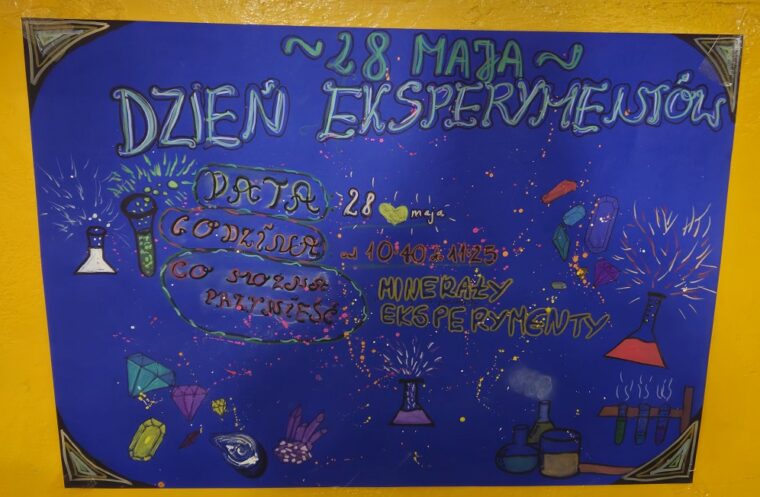 ~28 MAJA~
DZIEŃ EKSPERYMENTÓW
DATA 28 maja
GODZINA od 10 40 do 11 25
CO MOŻNA
PRZYNIEŚĆ
MINERAŁY
EKSPERYMENTY